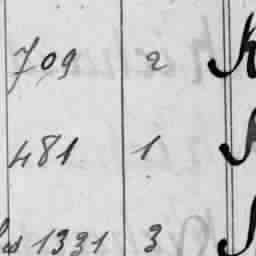 709 2
481 1
1331 3